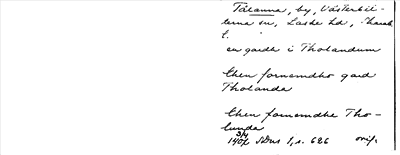 Tålanna, by, Västerbit-
terna sn, Laske hd, Skarab.
l.
en gardh i Tholandum
then fornemdho gard
Tholanda
then fornemdhe Tho-
lunda
3/4
1402 SDns 1, s. 626 orig.